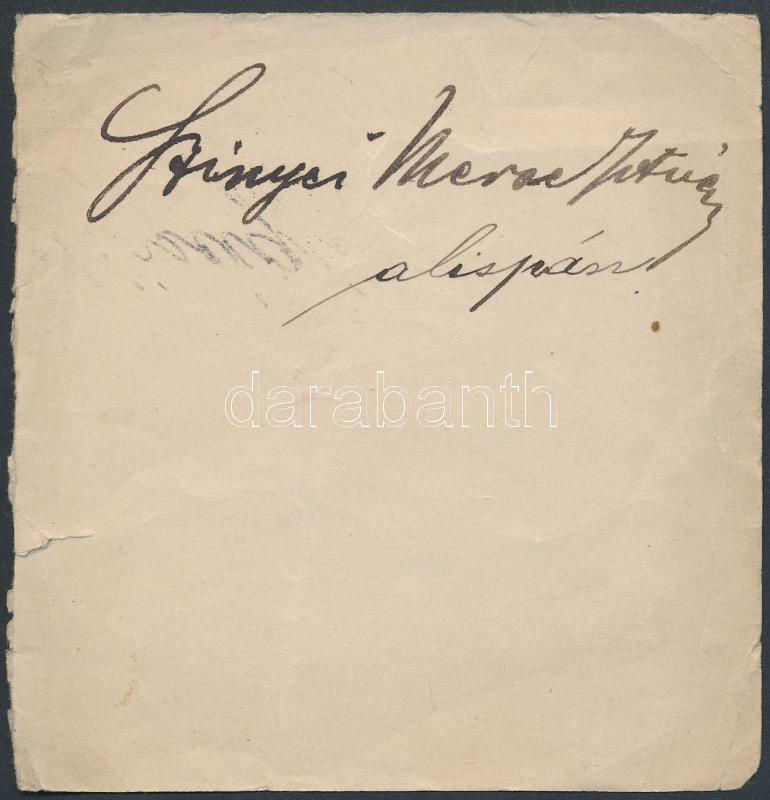 Szinyei Merse István
alispán
darabanth